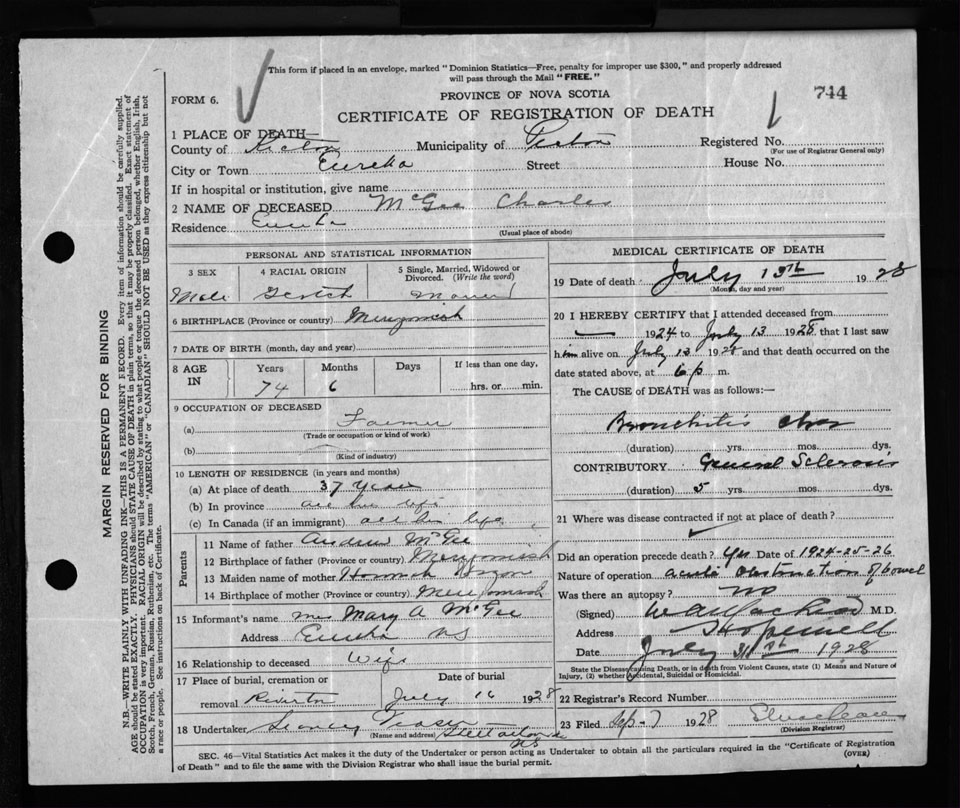 This form if placed in an envelope, marked "Dominion Statistics—Free, penalty for improper use $300," and properly addressed
will pass through the Mail "FREE."
PROVINCE OF NOVA SCOTIA
744
FORM 6.
CERTIFICATE OF REGISTRATION OF DEATH
1 PLACE OF DEATH—
County of Pictou Municipality of Pictou Registered No.
(For use of Registrar General only)
City or Town Eureka Street House No.
If in hospital or institution, give name
2 NAME OF DECEASED McGee Charles
Residence Eureka
(Usual place of abode)
PERSONAL AND STATISTICAL INFORMATION
3 SEX 4 RACIAL ORIGIN 5 Single, Married, Widowed or Divorced. (Write the word)
Male Scotch Married
6 BIRTHPLACE (Province or country) Merigomish
7 DATE OF BIRTH (month, day and year)
8 AGE IN Years Months Days If less than one day,
74 6 hrs. or min.
9 OCCUPATION OF DECEASED
(a) Farmer
(Trade or occupation or kind of work)
(b)
(Kind of industry)
10 LENGTH OF RESIDENCE (in years and months)
(a) At place of death 37 Years
(b) In province all his life
(c) In Canada (if an immigrant) all his life
Parents
11 Name of father Andrew McGee
12 Birthplace of father (Province or country) Merigomish
13 Maiden name of mother Hannah
14 Birthplace of mother (Province or country) Merigomish
15 Informant's name Mrs Mary A McGee
Address Eureka NS
16 Relationship to deceased Wife
17 Place of burial, cremation or removal Date of burial
Riverton July 16 1928
18 Undertaker Fraser Stellarton
(Name and address) NS
MEDICAL CERTIFICATE OF DEATH
19 Date of death July 13th 1928
(Month, day and year)
20 I HEREBY CERTIFY that I attended deceased from
— 1924 to July 13 1928 that I last saw
him alive on July 13 1928 and that death occurred on the
date stated above, at 6 p m.
The CAUSE of DEATH was as follows:—
Bronchitis chr
(duration) yrs. mos. dys.
CONTRIBUTORY General Sclerosis
(duration) 5 yrs. mos. dys.
21 Where was disease contracted if not at place of death?
Did an operation precede death? Yes Date of 1924-25-26
Nature of operation acute obstruction of bowel
Was there an autopsy? no
(Signed) M.D.
Address Hopewell
Date July 31st 1928
State the Disease causing Death, or in death from Violent Causes, state (1) Means and Nature of
Injury, (2) whether Accidental, Suicidal or Homicidal.
22 Registrar's Record Number
23 Filed Sep-7 1928
(Division Registrar)
SEC. 46—Vital Statistics Act makes it the duty of the Undertaker or person acting as Undertaker to obtain all the particulars required in the "Certificate of Registration
of Death" and to file the same with the Division Registrar who shall issue the burial permit.
(OVER)
MARGIN RESERVED FOR BINDING
N.B.—WRITE PLAINLY WITH UNFADING INK—THIS IS A PERMANENT RECORD. Every item of information should be carefully supplied.
AGE should be stated EXACTLY. PHYSICIANS should STATE CAUSE OF DEATH in plain terms, so that it may be properly classified. Exact statement of
OCCUPATION is very important. RACIAL ORIGIN will be described by stating to what people or tongue the deceased person belonged, whether English, Irish,
Scotch, French, German, Russian, Ruthenian, etc. The terms "AMERICAN" or "CANADIAN" SHOULD NOT BE USED as they express citizenship but not
a race or people. See instructions on back of Certificate.